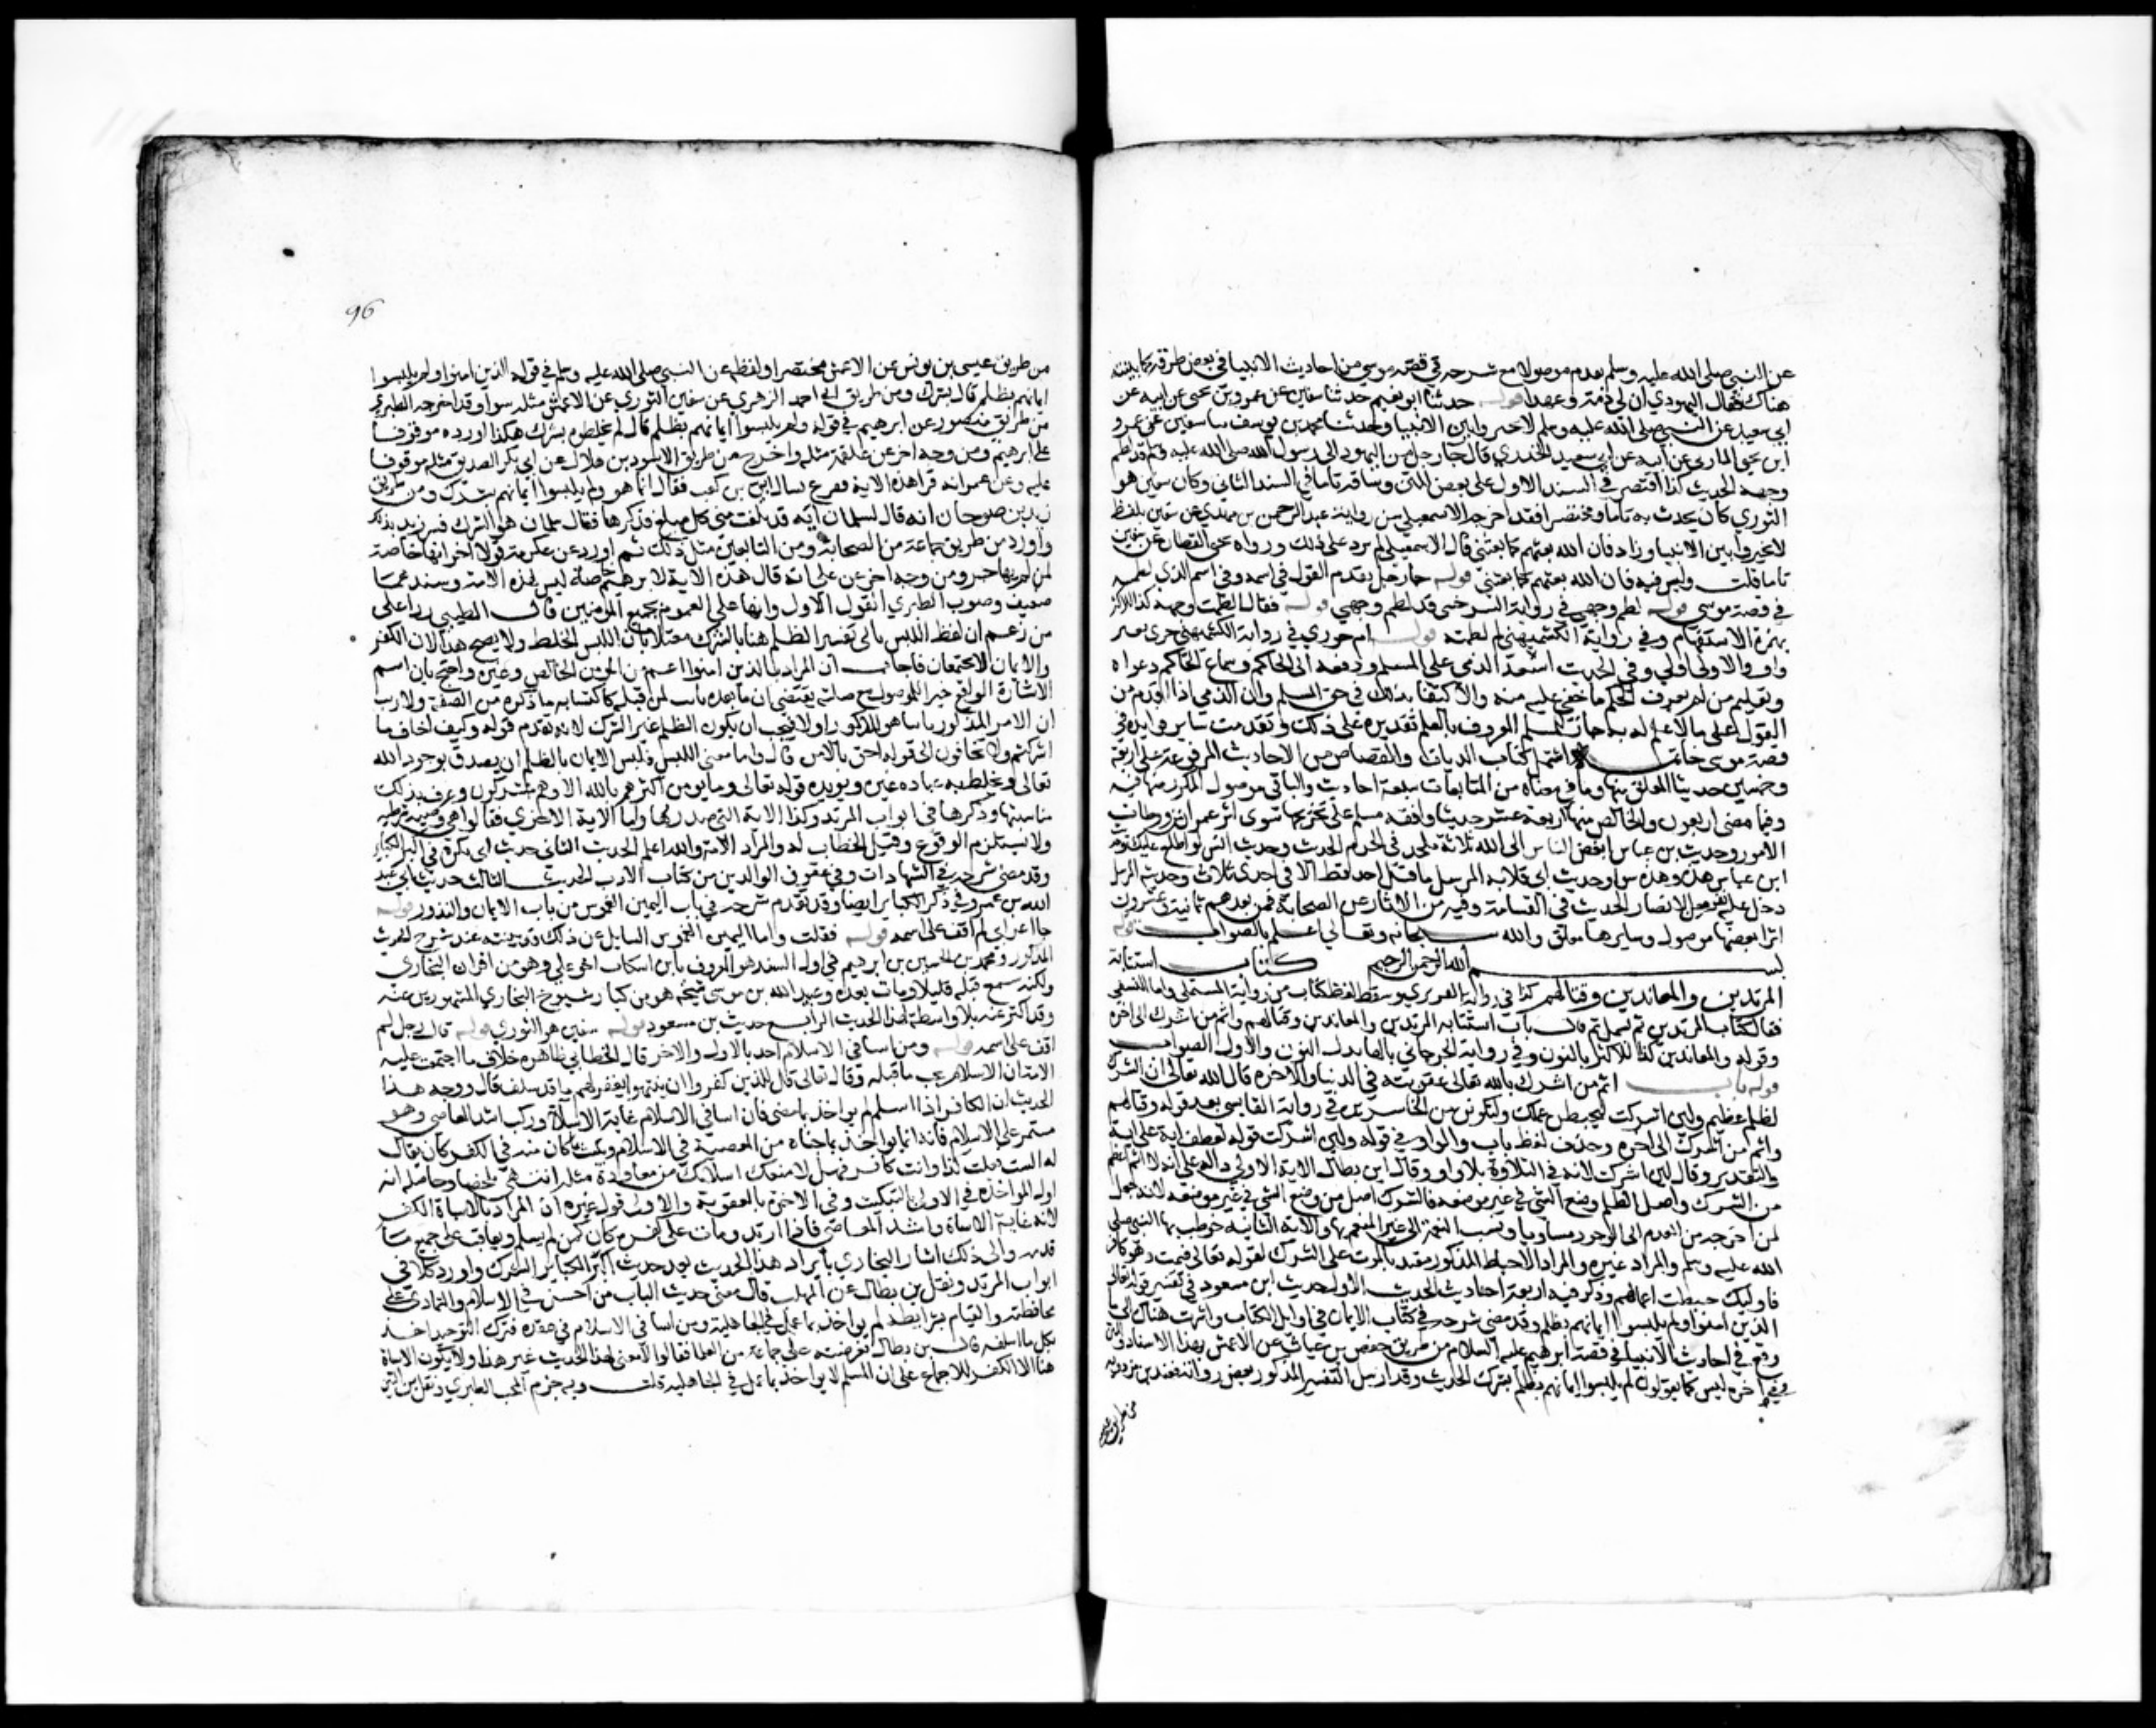 عن النبي صلى الله عليه وسلم تقدم موصولا مع شرحه في قصة موسى من احاديث الانبيا في بعض طرقه كما بينته
هناك فقال اليهودي ان لي ذمة وعهدا قوله حدثنا ابو نعيم حدثنا سفين عن عمرو بن يحيى عن ابيه عن
ابي سعيد عن النبي صلى الله عليه وسلم لا تخيروا بين الانبيا وحدثنا محمد بن يوسف سا سفين عن عمرو
ابن يحيى المازني عن ابيه عن ابي سعيد الخدري قال جا رجل من اليهود الى رسول الله صلى الله عليه وسلم قد لطم
وجهه الحديث كذا اقتصر في السند الاول على بعض المتن وساقه تاما في السند الثاني وكان سفين هو
الثوري كان يحدث به تاما ومختصرا فقد اخرجه الاسمعيلي من رواية عبد الرحمن بن مهدي عن سفين بلفظ
لا تخيروا بين الانبيا وزاد فان الله بعثهم كما بعثني قال الاسمعيلي لم يزد على ذلك ورواه يحيى القطان عن سفين
تاما قلت وليس فيه فان الله بعثهم كما بعثني قوله جا رجل تقدم القول في اسمه وفي اسم الذي لطمه
في قصة موسى قوله لطم وجهي في رواية السرخسي قد لطم وجهي قوله فقال الطمت وجهه كذا للاكثر
بهمزة الاستفهام وفي رواية الكشميهني لم لطمته قوله ام جوزي في رواية الكشميهني جزي بغير
واو والاولى اولى وفي الحديث استعدا الذمي على المسلم ورفعه الى الحاكم وسماع الحاكم دعواه
وتعليم من لم يعرف الحكم ما خفي عليه منه والاكتفا بذلك في حق المسلم وان الذمي اذا اقدم من
القول على ما لا علم له به جاز للمسلم المعروف بالعلم تعزيره على ذلك وتقدمت ساير فوايده في
قصة موسى خاتمة اشتمل كتاب الديات والقصاص من الاحاديث المرفوعة على اربعة
وخمسين حديثا المعلق منها وما في معناه من المتابعات سبعة احاديث والباقي موصول المكرر منها فيه
وفيما مضى اربعون والخالص منها اربعة عشر حديثا وافقه مسلم على تخريجها سوى
الامور وحديث بن عباس ابغض الناس الى الله ثلاثة ملحد في الحرم الحديث وحديث انس لو اطلع عليك وحديث
ابن عباس هذه وهذه سوا وحديث ابي قلابة المرسل ما قتل احد قط الا في احدى ثلاث وحديثه المرسل
دخل عليه نفر من الانصار الحديث في القسامة وفيه من الاثار عن الصحابة فمن بعدهم ثمانية وعشرون
اثرا بعضها موصول وسايرها معلق والله سبحانه وتعالى اعلم بالصواب قوله
بسم الله الرحمن الرحيم كتاب استتابة
المرتدين والمعاندين وقتالهم كذا في رواية الفربري وسقط لفظ كتاب من رواية المستملي واما النسفي
فقال كتاب المرتدين ثم بسمل ثم قال باب استتابة المرتدين والمعاندين وقتالهم واثم من اشرك الى اخره
وقوله والمعاندين كذا للاكثر بالنون وفي رواية الجرجاني بالها بدل النون والاول الصواب
قوله باب اثم من اشرك بالله تعالى عقوبته في الدنيا والاخرة قال الله تعالى ان الشرك
لظلم عظيم ولئن اشركت ليحبطن عملك ولتكونن من الخاسرين في رواية القابسي بعد قوله وقتالهم
واثم من اشرك الى اخره وحذف لفظ باب والواو في قوله ولئن اشركت قوله لعطف اية على اية
والتقدير وقال لئن اشركت لانه في التلاوة بلا واو وقال ابن بطال الاية الاولى دالة على انه لا اثم اعظم
من الشرك واصل الظلم وضع الشي في غير موضعه فالشرك اصل من وضع الشي في غير موضعه لانه جعل
لمن اخرجه من العدم الى الوجود مساويا ونسب النعمة الى غير المنعم بها والاية الثانية خوطب بها النبي صلى
الله عليه وسلم والمراد غيره والمراد الاحباط المذكور مقيد بالموت على الشرك لقوله تعالى فيمت وهو كافر
فاوليك حبطت اعمالهم وذكر فيه اربعة احاديث الحديث الاول حديث ابن مسعود في تفسير قوله تعالى
الذين امنوا ولم يلبسوا ايمانهم بظلم وقد مضى شرحه في كتاب الايمان في اوايل الكتاب واشرت هناك الى ما
وقع في احاديث الانبيا في قصة ابرهيم عليه السلام من طريق حفص بن غياث عن الاعمش بهذا الاسناد
وفي اخره ليس كما تقولون لم يلبسوا ايمانهم بظلم بشرك الحديث وقد ارسل التفسير المذكور بعض رواته فعند بن مردويه
من طريق عيسى
96
من طريق عيسى بن يونس عن الاعمش مختصرا ولفظه عن النبي صلى الله عليه وسلم في قوله الذين امنوا ولم يلبسوا
ايمانهم بظلم قال بشرك ومن طريق ابي احمد الزهري عن سفين الثوري عن الاعمش مثله سوا وقد اخرجه الطبري
من طريق منصور عن ابرهيم في قوله ولم يلبسوا ايمانهم بظلم قال لم يخلطوه بشرك هكذا اورده موقوفا
على ابرهيم ومن وجه اخر عن علقمة مثله واخرج من طريق الاسود بن هلال عن ابي بكر الصديق مثله موقوفا
عليه وعن عمر انه قرا هذه الاية ففزع فسال ابي بن كعب فقال انما هو ولم يلبسوا ايمانهم بشرك ومن طريق
زيد بن صوحان انه قال لسلمان اية قد بلغت مني كل مبلغ فذكرها فقال سلمان هو الشرك فسر زيد بذلك
واورد من طريق جماعة من الصحابة ومن التابعين مثل ذلك ثم اورد عن عكرمة قولا اخر انها خاصة
لمن لم يهاجر ومن وجه اخر عن علي انه قال هذه الاية لابرهيم خاصة ليس لهذه الامة وسندهما
ضعيف وصوب الطبري القول الاول وانها على العموم لجميع المومنين قال الطيبي ردا على
من زعم ان لفظ اللبس يابى تفسير الظلم هنا بالشرك معتلا بان اللبس الخلط ولا يصح هذا لان الكفر
والايمان لا يجتمعان فاجاب ان المراد بالذين امنوا اعم من المومن الخالص وغيره واحتج بان اسم
الاشارة الواقع خبرا للموصول مع صلته يقتضي ان ما بعده ثابت لمن قبله لاكتسابه ما ذكره من الصفة ولا ريب
ان الامر المذكور ثانيا هو المذكور اولا فيجب ان يكون الظلم عين الشرك لانه تقدم قوله وكيف اخاف ما
اشركتم ولا تخافون الى قوله احق بالامن قال واما معنى اللبس فلبس الايمان بالظلم ان يصدق بوجود الله
تعالى ويخلط به عبادة غيره ويويده قوله تعالى وما يومن اكثرهم بالله الا وهم مشركون وعرف بذلك
مناسبتها وذكرها في ابواب المرتد وكذا الاية التي صدر بها واما الاية الاخرى فقالوا هي قضية شرطية
ولا يستلزم الوقوع وقيل الخطاب له والمراد الامة والله اعلم الحديث الثاني حديث ابي بكرة في اكبر الكباير
وقد مضى شرحه في الشهادات وفي عقوق الوالدين من كتاب الادب الحديث الثالث حديث ابي عبد
الله بن عمرو في ذكر الكباير ايضا وقد تقدم شرحه في باب اليمين الغموس من باب الايمان والنذور قوله
جا اعرابي لم اقف على اسمه قوله فقلت وما اليمين الغموس السايل عن ذلك قد بينته عند شرح الحديث
المذكور ومحمد بن الحسين بن ابرهيم في اول السند هو المعروف بابن اسكاب اخو علي وهو من اقران البخاري
ولكنه سمع قبله قليلا ومات بعده وعبيد الله بن موسى شيخه هو من كبار شيوخ البخاري المشهورين عنه
وقد اكثر عنه بلا واسطة الحديث الرابع حديث بن مسعود قوله سفين هو الثوري قوله قال رجل لم
اقف على اسمه قوله ومن اسا في الاسلام اخذ بالاول والاخر قال الخطابي ظاهره خلاف ما اجتمعت عليه
الامة ان الاسلام يجب ما قبله وقال تعالى قل للذين كفروا ان ينتهوا يغفر لهم ما قد سلف قال ووجه هذا
الحديث ان الكافر اذا اسلم لم يواخذ بما مضى فان اسا في الاسلام غاية الاساة وركب اشد المعاصي وهو
مستمر على الاسلام فانه انما يواخذ بما جناه من المعصية في الاسلام ويبكت بما كان منه في الكفر كان يقال
له الست فعلت كذا وانت كافر فهل لا منعك اسلامك من معاودة مثله انتهى ملخصا وحاصله انه
اول المواخذة في الاول بالتبكيت وفي الاخر بالعقوبة والاولى قول غيره ان المراد بالاساة الكفر
لانه غاية الاساة واشد المعاصي فاذا ارتد ومات على كفره كان كمن لم يسلم ويعاقب على جميع ما
قدمه والى ذلك اشار البخاري بايراد هذا الحديث بعد حديث اكبر الكباير الشرك واورد كلا في
ابواب المرتد ونقل بن بطال عن المهلب قال معنى حديث الباب من احسن في الاسلام والتمادي على
محافظته والقيام بشرايطه لم يواخذ بما عمل في الجاهلية ومن اسا في الاسلام في عقده فترك التوحيد اخذ
بكل ما اسلفه قال بن بطال فعرضته على جماعة من العلما فقالوا لا معنى لهذا الحديث غير هذا ولا تكون الاساة
هنا الا الكفر للاجماع على ان المسلم لا يواخذ بما عمل في الجاهلية قلت وبه جزم المحب الطبري ونقل بن التين